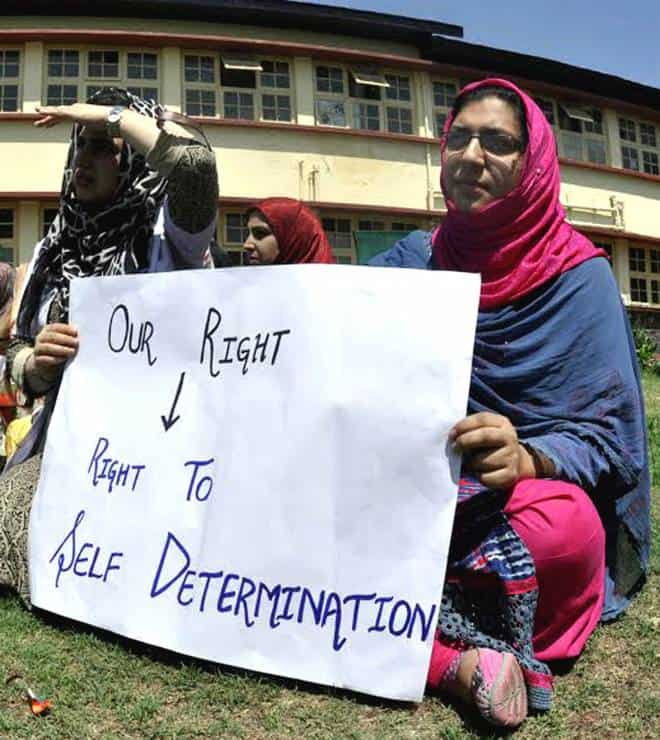 Our Right
↓
Right To
Self Determination